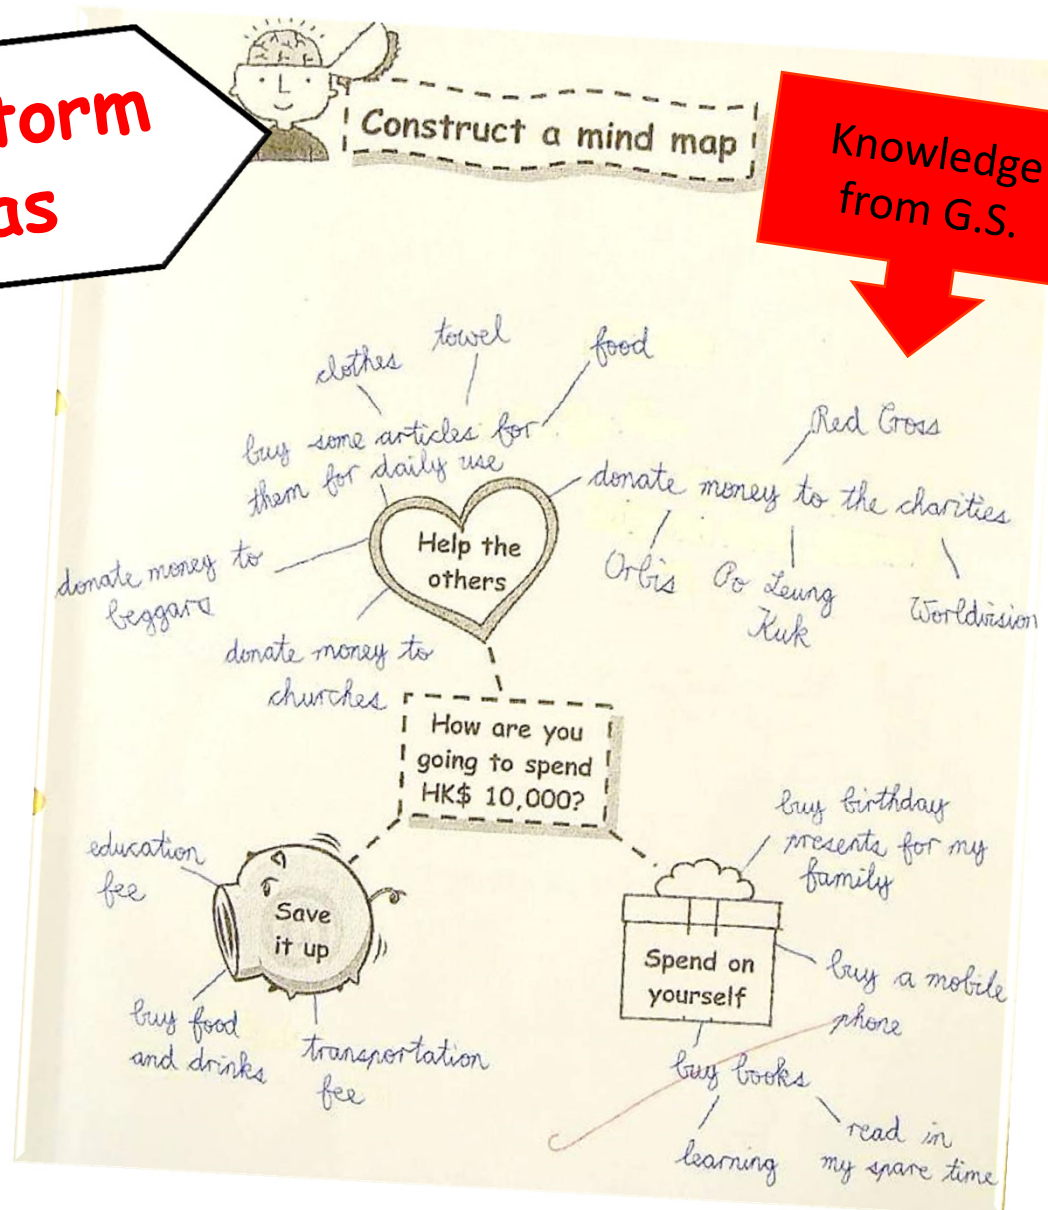 torm
as
Construct a mind map
Knowledge
from G.S.
towel
clothes
food
buy some articles for
them for daily use
Red Cross
donate money to the charities
Orbis
Po Leung
Kuk
Worldvision
Help the
others
donate money to
beggars
donate money to
churches
How are you
going to spend
HK$ 10,000?
education
fee
Save
it up
buy food
and drinks
transportation
fee
buy birthday
presents for my
family
Spend on
yourself
buy a mobile
phone
buy books
learning
read in
my spare time